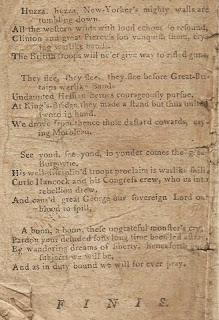 Huzza, huzza, New-Yorker's mighty walls are
tumbling down,
All the western winds with loud echoes to resound,
Clinton and great Piercy's son vanquish them,
ing warlike bands.
The British troops will ne'er give way to rifled guns.
They flee, they flee, they flee before Great-Bri-
tains warlike bands
Undaunted Hessian heroes courageously pursue.
At King's-Bridge they made a stand but thus
sword in hand.
We drove from hence those dastard cowards,
ing Motoleau.
See yond, see yond, lo yonder comes the
Burgoyne,
His well troops proclaim is warlike
Curse Hancock and his Congress crew, who us into
rebellion drew,
And caus'd great George our sovereign Lord our
blood to spill,
A boon, a boon, these ungrateful monster's cry,
Pardon your deluded sons long time been led astray,
By wandering dreams of liberty, henceforth
subjects we will be,
And as in duty bound we will for ever pray.
FINIS.